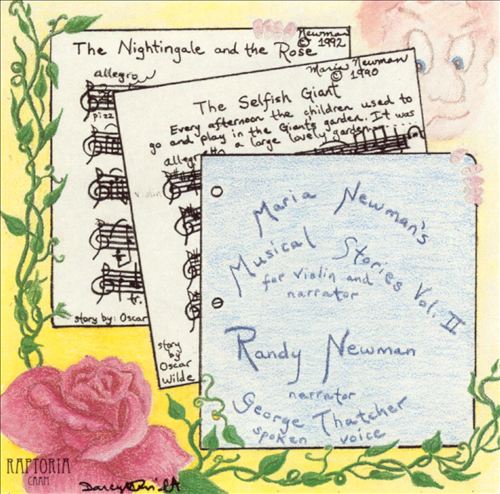 Newman
© 1992
The Nightingale and the Rose
allegro
pizz
Maria Newman
© 1990
The Selfish Giant
Every afternoon the children used to
go and play in the Giant's garden. It was
a large lovely garden
allegro
violin
tr.
story by: Oscar
story
by
Oscar
Wilde
Maria Newman's
Musical Stories Vol. II
for violin and
narrator
Randy Newman
narrator
George Thatcher
spoken voice
RAPTORIA
CAAM